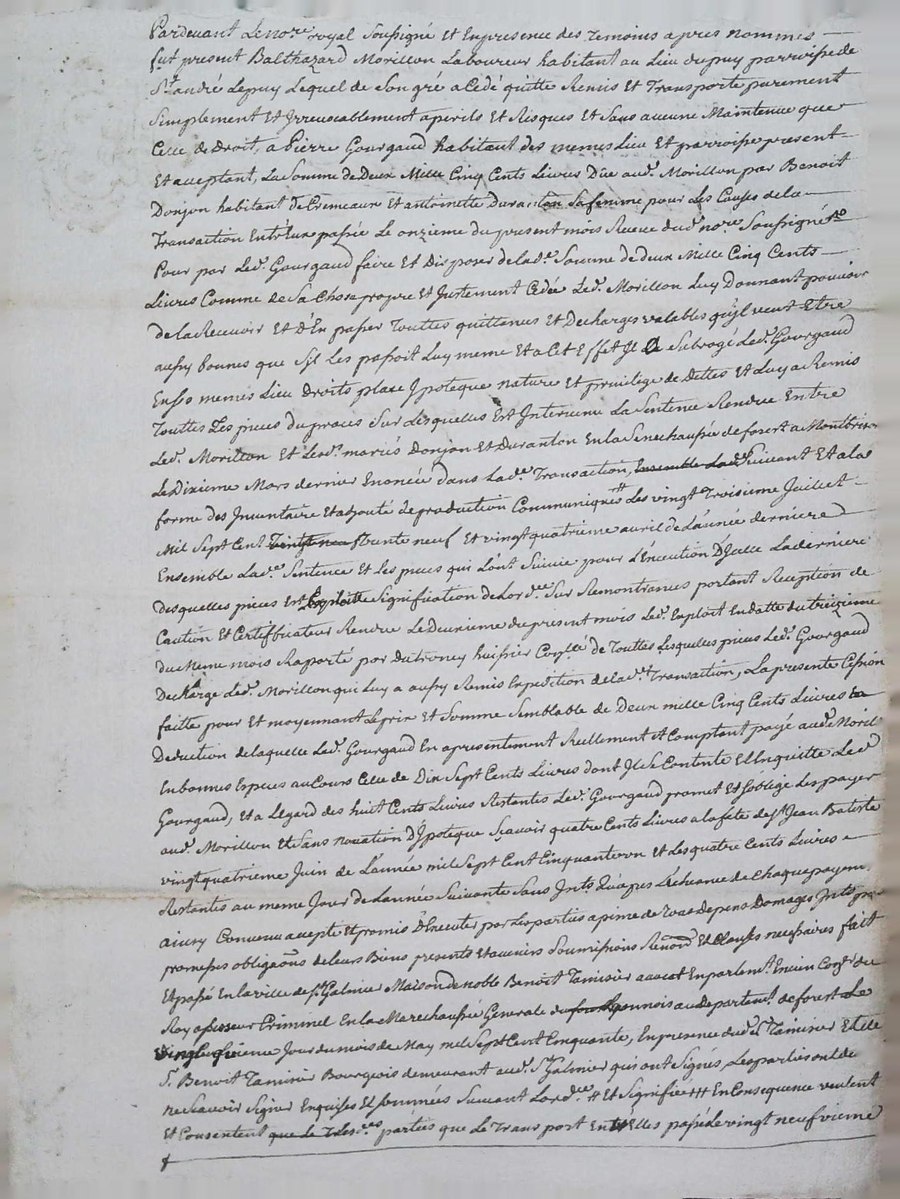 Pardevant Le nore royal Soussigné Et En presence des Temoins apres nommes
fut present Balthazard Morillon Laboureur habitant au Lieu du puy parroisse de
St. andré Le puy Lequel de Son gré a Cedé quitte Remis Et Transporté purement
Simplement Et Irrevocablement a perils Et Risques Et Sans aucune Maintenue que
Celle de Droit, a Pierre Gourgaud habitant des memes Lieu Et parroisse present
Et acceptant, La Somme de Deux Mille Cinq Cents Livres Düe aud. Morillon par Benoit
Donjon habitant de Cremeaux Et antoinette Duranton Sa femme pour Les Causes de la
Transaction Entr'Eux passée Le onzieme du present mois Recue dud. nore Soussigné
Pour par Led. Gourgaud faire Et Disposer de lad. Somme de deux Mille Cinq Cents
Livres Comme de Sa Chose propre Et Justement Cedée Led. Morillon Luy Donnant pouvoir
de la Recevoir Et D'En passer Touttes quittances Et Decharges valables qu'jl veut Etre
aussy bonnes que S'jl Les passoit Luy meme Et a Cet Effet Jl a Subrogé Led. Gourgaud
En Ses memes Lieu Droits place Jpoteque nature Et privilége de Dettes Et Luy a Remis
Touttes Les pieces du procès Sur Lesquelles Est Intervenu La Sentence Rendue Entre
Led. Morillon Et Lesd. mariés Donjon Et Duranton En la Senechaussée de forest a Montbrison
Le Dixieme Mars dernier Enoncée dans Lad. Transaction, Ensemble Lad. Suivant Et a la
forme des Inventaire Et adjouté de production Communiqués Les vingt Troisieme Juillet
mil Sept Cent vingt neuf trente neuf Et vingt quatrieme avril de L'année derniere
Ensemble Lad. Sentence Et Les pieces qui L'ont Suivie pour L'Execution D'Jcelle La derniere
desquelles pieces Est Exploitte Signification de Lord.ce Sur Remontrances portant Reception de
Caution Et Certifficateur Rendue Le Deuxieme du present mois Led. Exploit En datte du treizieme
du Meme mois Raporté par Dutroney huissier de Touttes Lesquelles pieces Led. Gourgaud
Decharge Led. Morillon qui Luy a aussy Remis Expedition de lad. Transaction, La presente Cession
faitte pour Et moyennant Le prix Et Somme Semblable de Deux mille Cinq Cents Livres En
Deduction de laquelle Led. Gourgaud En a presentement Reellement Et Comptant payé aud. Morillon
En bonnes Especes au Cours Celle de Dix Sept Cents Livres dont Jl Se Contente Et En quitte Led.
Gourgaud, Et a L'Egard des huit Cents Livres Restantes Led. Gourgaud promet Et s'oblige Les payer
aud. Morillon Et Sans novation D'Jpoteque Sçavoir quatre Cents Livres a la fete de St. Jean Batiste
vingt quatrieme Juin de L'année mil Sept Cent Cinquante un Et Les quatre Cents Livres
Restantes au meme Jour de L'année Suivante Sans Jnts Qu'apres L'Echeance de Chaque payem.
ainsy Convenu accepté Et promis D'Executer par Les parties a peine de Tous Depens Domages Jnts par
promesses obligaõns de leurs Biens presents Et avenirs Soumissions Renon Et Clauses necessaires fait
Et passé En la ville de St. Galmier Maison de noble Benoit Tamisier avocat En parlemt. Encien Conser du
Roy assesseur Criminel En la Marechaussée Generale du Lyonnois au Departemt. de forest Le
vingt neufvieme Jour du mois de May mil Sept Cent Cinquante, En presence dud. Sr. Tamisier Et de
Sr. Benoit Tamisier Bourgeois demeurant aud. St. Galmier qui ont Signés, Les parties ont dit
ne Scavoir Signer Enquises Et Sommées Suivant Lord.ce # Et Signifiée ### En Consequence veulent
Et Consentent que les parties que Le Transport Entr'Elles passé Le vingt neufvieme